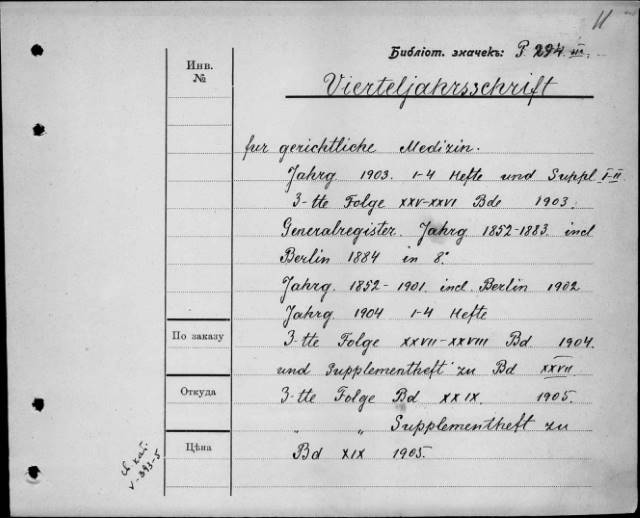 11
Библіот. значекъ: P. 294 III
Инв.
№
Vierteljahrsschrift
fur gerichtliche Medizin.
Jahrg 1903. 1-4 Hefte und Suppl I-II
3-tte Folge XXV-XXVI Bde 1903.
Generalregister. Jahrg 1852-1883. incl
Berlin 1884 in 8°.
Jahrg. 1852-1901. incl. Berlin 1902
Jahrg 1904 1-4 Hefte
По заказу
3-tte Folge XXVII-XXVIII Bd 1904.
und Supplementheft zu Bd XXVII
Откуда
3-tte Folge Bd XXIX. 1905.
" " Supplementheft zu
Цѣна
Bd XIX 1905.
V-393-5